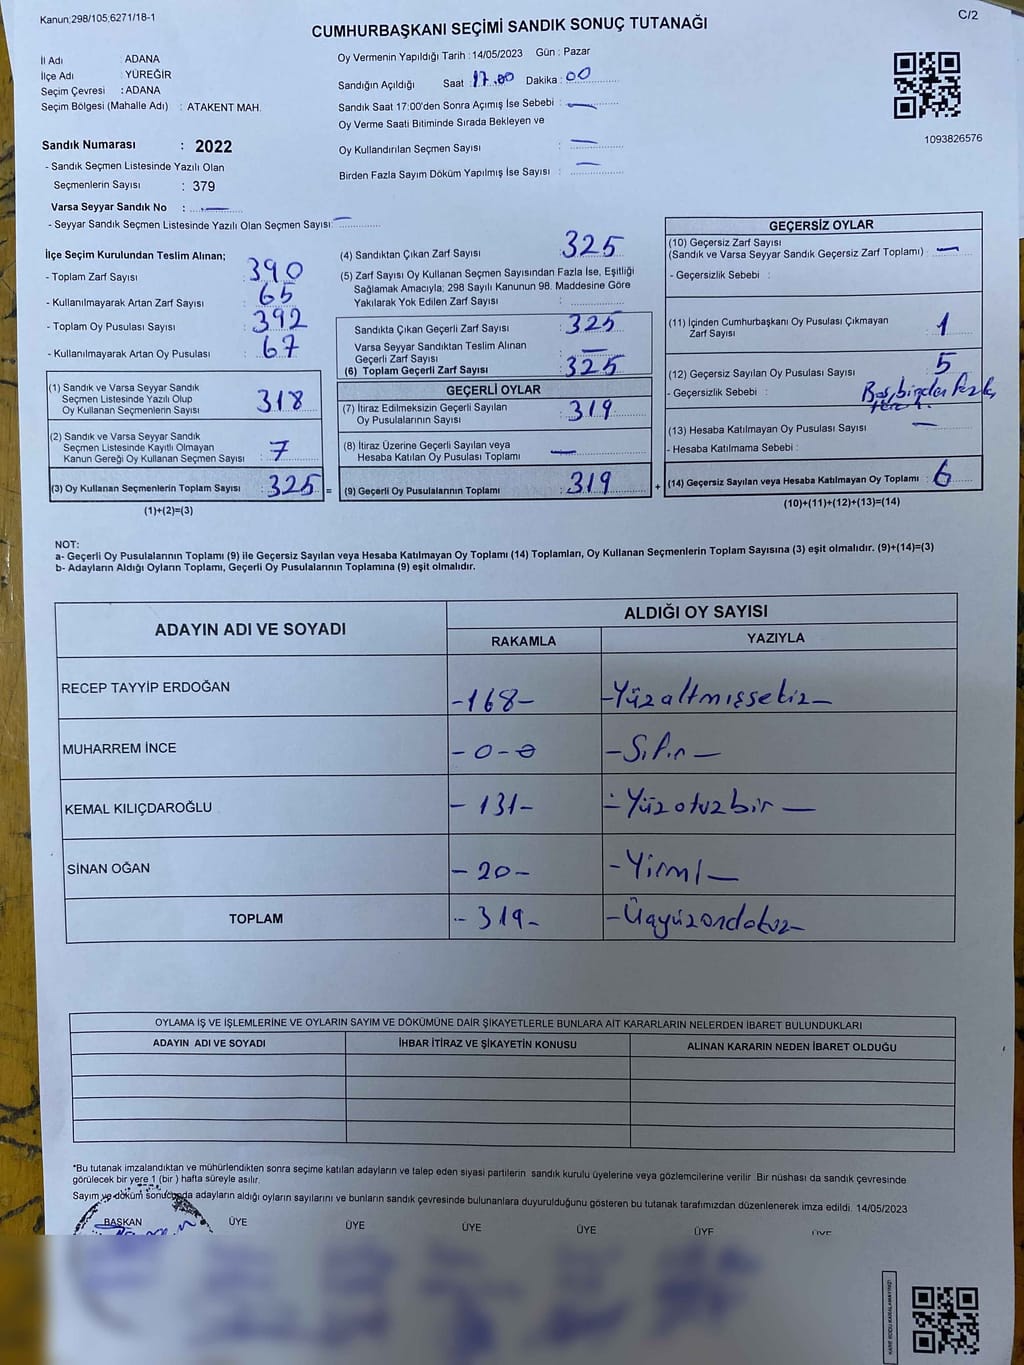 Kanun:298/105;6271/18-1
C/2
CUMHURBAŞKANI SEÇİMİ SANDIK SONUÇ TUTANAĞI
İl Adı : ADANA
İlçe Adı : YÜREĞİR
Seçim Çevresi : ADANA
Seçim Bölgesi (Mahalle Adı) : ATAKENT MAH.
Sandık Numarası : 2022
- Sandık Seçmen Listesinde Yazılı Olan
Seçmenlerin Sayısı : 379
Varsa Seyyar Sandık No : —
- Seyyar Sandık Seçmen Listesinde Yazılı Olan Seçmen Sayısı: —
Oy Vermenin Yapıldığı Tarih : 14/05/2023 Gün : Pazar
Sandığın Açıldığı Saat : 17.00 Dakika : 00
Sandık Saat 17:00'den Sonra Açımış İse Sebebi : —
Oy Verme Saati Bitiminde Sırada Bekleyen ve
Oy Kullandırılan Seçmen Sayısı : —
Birden Fazla Sayım Döküm Yapılmış İse Sayısı : —
1093826576
İlçe Seçim Kurulundan Teslim Alınan;
- Toplam Zarf Sayısı : 390
- Kullanılmayarak Artan Zarf Sayısı : 65
- Toplam Oy Pusulası Sayısı : 392
- Kullanılmayarak Artan Oy Pusulası : 67
(1) Sandık ve Varsa Seyyar Sandık
Seçmen Listesinde Yazılı Olup
Oy Kullanan Seçmenlerin Sayısı : 318
(2) Sandık ve Varsa Seyyar Sandık
Seçmen Listesinde Kayıtlı Olmayan
Kanun Gereği Oy Kullanan Seçmen Sayısı : 7
(3) Oy Kullanan Seçmenlerin Toplam Sayısı : 325 =
(1)+(2)=(3)
(4) Sandıktan Çıkan Zarf Sayısı : 325
(5) Zarf Sayısı Oy Kullanan Seçmen Sayısından Fazla İse, Eşitliği
Sağlamak Amacıyla; 298 Sayılı Kanunun 98. Maddesine Göre
Yakılarak Yok Edilen Zarf Sayısı :
Sandıkta Çıkan Geçerli Zarf Sayısı : 325
Varsa Seyyar Sandıktan Teslim Alınan
Geçerli Zarf Sayısı : —
(6) Toplam Geçerli Zarf Sayısı : 325
GEÇERLİ OYLAR
(7) İtiraz Edilmeksizin Geçerli Sayılan
Oy Pusulalarının Sayısı : 319
(8) İtiraz Üzerine Geçerli Sayılan veya
Hesaba Katılan Oy Pusulası Toplamı : —
(9) Geçerli Oy Pusulalarının Toplamı : 319 +
GEÇERSİZ OYLAR
(10) Geçersiz Zarf Sayısı
(Sandık ve Varsa Seyyar Sandık Geçersiz Zarf Toplamı) : —
- Geçersizlik Sebebi :
(11) İçinden Cumhurbaşkanı Oy Pusulası Çıkmayan
Zarf Sayısı : 1
(12) Geçersiz Sayılan Oy Pusulası Sayısı : 5
- Geçersizlik Sebebi : Boş, birden fazla
(13) Hesaba Katılmayan Oy Pusulası Sayısı : —
- Hesaba Katılmama Sebebi :
(14) Geçersiz Sayılan veya Hesaba Katılmayan Oy Toplamı : 6
(10)+(11)+(12)+(13)=(14)
NOT:
a- Geçerli Oy Pusulalarının Toplamı (9) ile Geçersiz Sayılan veya Hesaba Katılmayan Oy Toplamı (14) Toplamları, Oy Kullanan Seçmenlerin Toplam Sayısına (3) eşit olmalıdır. (9)+(14)=(3)
b- Adayların Aldığı Oyların Toplamı, Geçerli Oy Pusulalarının Toplamına (9) eşit olmalıdır.
ADAYIN ADI VE SOYADI
ALDIĞI OY SAYISI
RAKAMLA YAZIYLA
RECEP TAYYİP ERDOĞAN -168- -Yüzaltmışsekiz-
MUHARREM İNCE -0-0 -Sıfır-
KEMAL KILIÇDAROĞLU -131- -Yüzotuzbir-
SİNAN OĞAN -20- -Yirmi-
TOPLAM -319- -Üçyüzondokuz-
OYLAMA İŞ VE İŞLEMLERİNE VE OYLARIN SAYIM VE DÖKÜMÜNE DAİR ŞİKAYETLERLE BUNLARA AİT KARARLARIN NELERDEN İBARET BULUNDUKLARI
ADAYIN ADI VE SOYADI İHBAR İTİRAZ VE ŞİKAYETİN KONUSU ALINAN KARARIN NEDEN İBARET OLDUĞU
*Bu tutanak imzalandıktan ve mühürlendikten sonra seçime katılan adayların ve talep eden siyasi partilerin sandık kurulu üyelerine veya gözlemcilerine verilir. Bir nüshası da sandık çevresinde
görülecek bir yere 1 (bir) hafta süreyle asılır.
Sayım ve döküm sonucunda adayların aldığı oyların sayılarını ve bunların sandık çevresinde bulunanlara duyurulduğunu gösteren bu tutanak tarafımızdan düzenlenerek imza edildi. 14/05/2023
BAŞKAN ÜYE ÜYE ÜYE ÜYE ÜYE ÜYE
KARE KODU KARALAMAYINIZ!